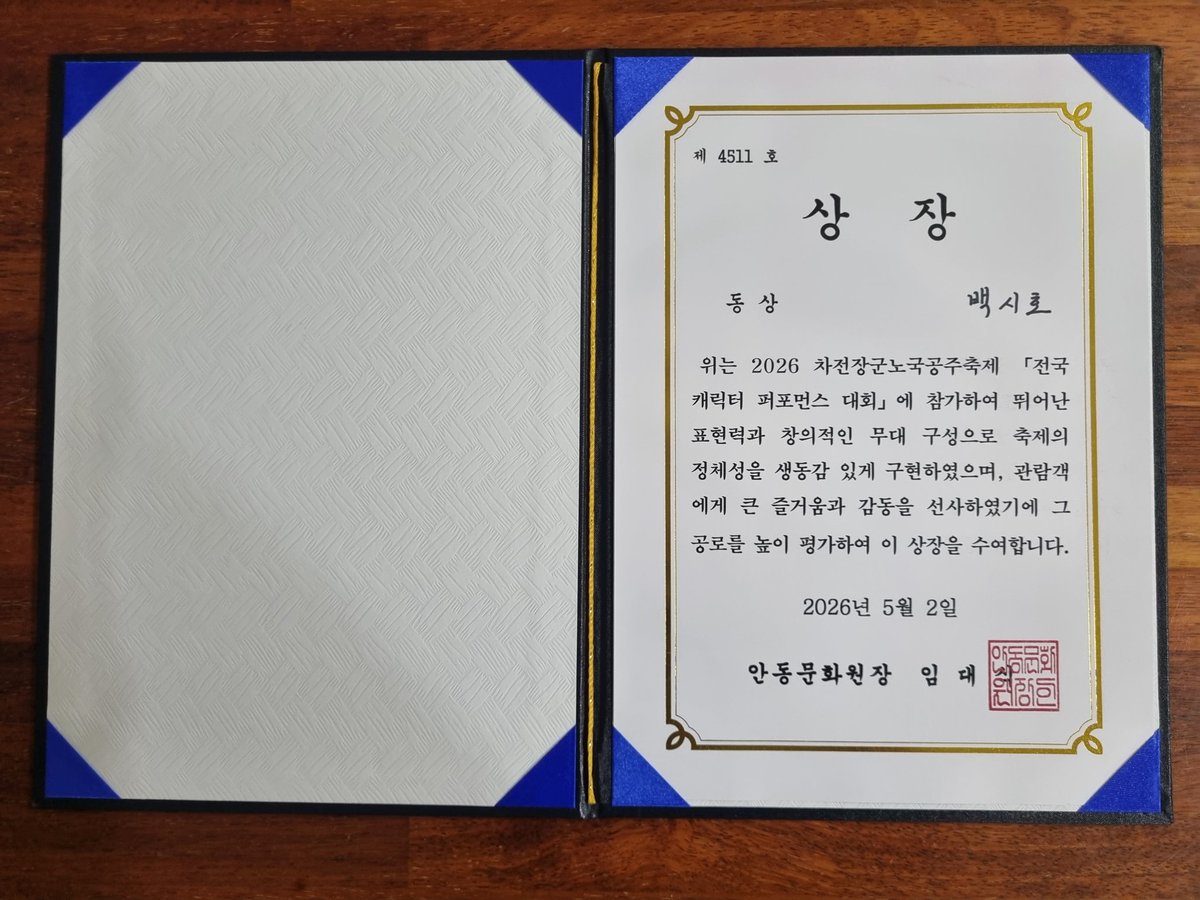 제 4511 호
상 장
동 상 백시호
위는 2026 차전장군노국공주축제 「전국
캐릭터 퍼포먼스 대회」에 참가하여 뛰어난
표현력과 창의적인 무대 구성으로 축제의
정체성을 생동감 있게 구현하였으며, 관람객
에게 큰 즐거움과 감동을 선사하였기에 그
공로를 높이 평가하여 이 상장을 수여합니다.
2026년 5월 2일
안동문화원장 임 대
안동문화
원장인